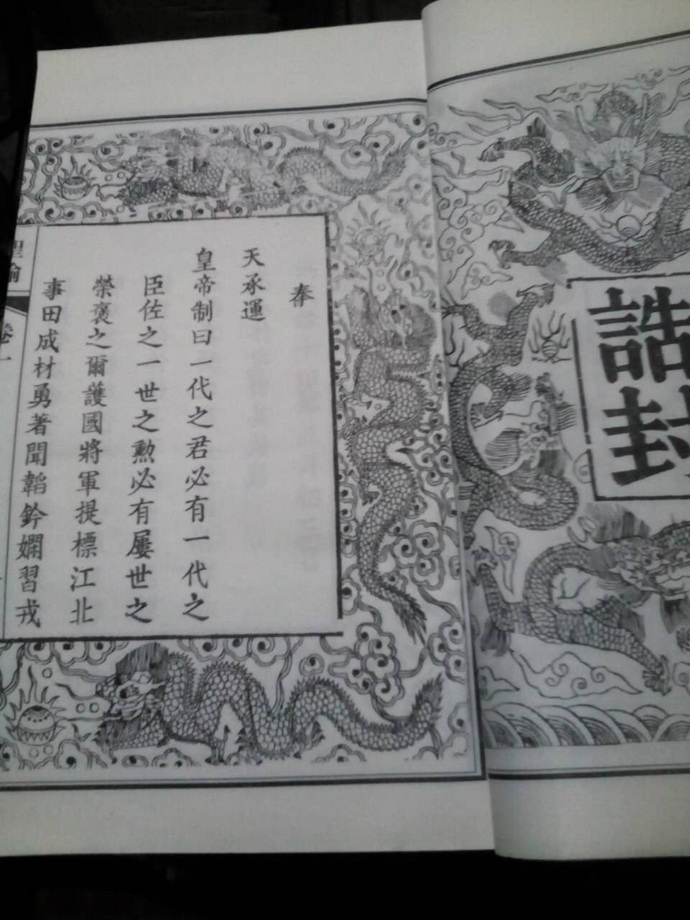 誥封
奉
天承運
皇帝制曰一代之君必有一代之
臣佐之一世之勲必有屢世之
榮褒之爾護國將軍提標江北
事田成材勇著聞韜鈐嫻習戎
卷一